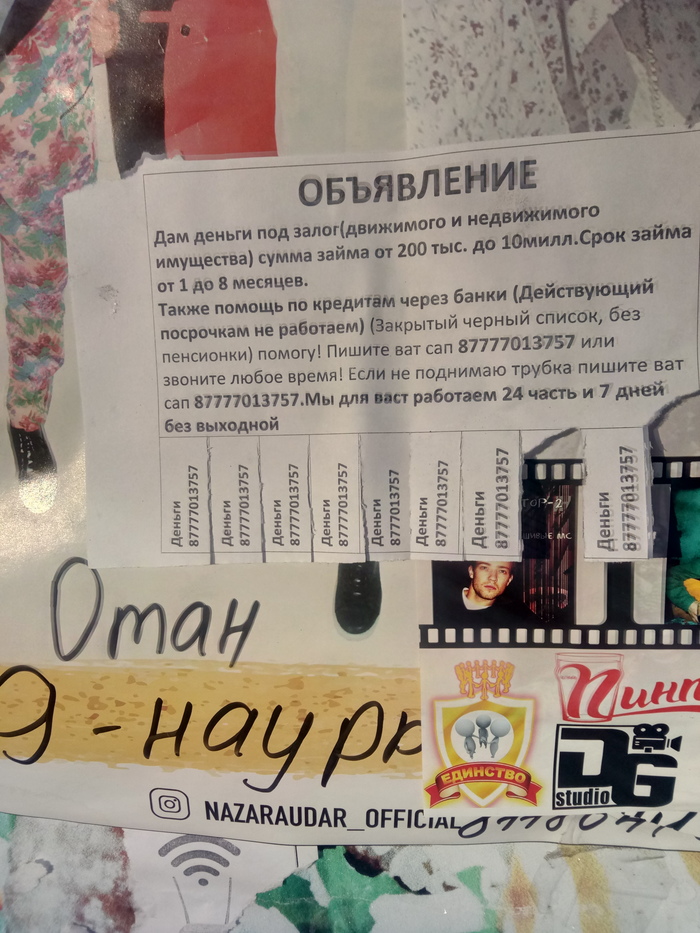 ОБЪЯВЛЕНИЕ
Дам деньги под залог(движимого и недвижимого
имущества) сумма займа от 200 тыс. до 10милл.Срок займа
от 1 до 8 месяцев.
Также помощь по кредитам через банки (Действующий
посрочкам не работаем) (Закрытый черный список, без
пенсионки) помогу! Пишите ват сап 87777013757 или
звоните любое время! Если не поднимаю трубка пишите ват
сап 87777013757.Мы для васт работаем 24 часть и 7 дней
без выходной
Деньги
87777013757
Деньги
87777013757
Деньги
87777013757
Деньги
87777013757
Деньги
87777013757
Деньги
87777013757
Деньги
87777013757
Деньги
87777013757
Отан
9-наур
ЕДИНСТВО
Пинт
DG
studio
NAZARAUDAR_OFFICIAL